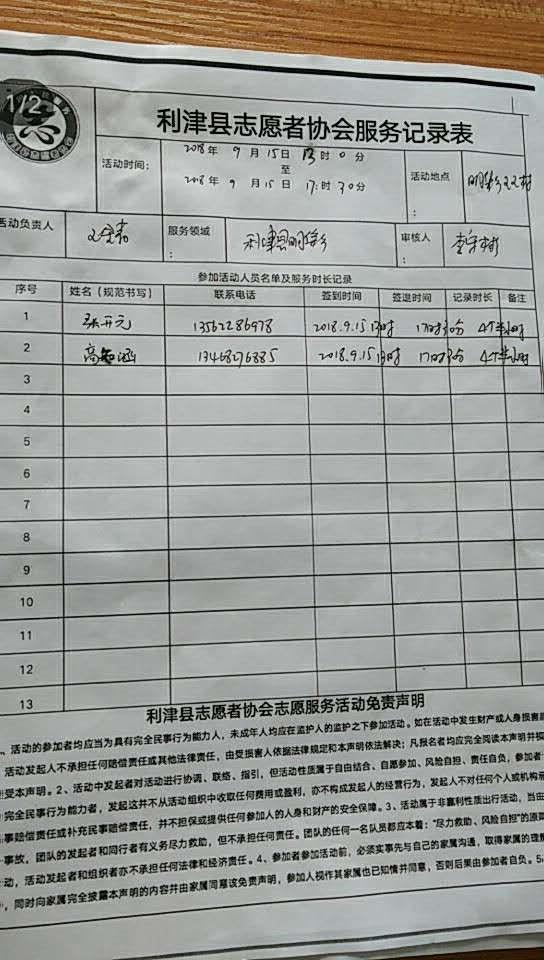 1/2
利津县志愿者协会服务记录表
活动时间：
2018年 9月15日 13时0分
至
2018年 9月15日 17:时30分
活动地点：
活动负责人
服务领域：
利津县明集乡
审核人：
参加活动人员名单及服务时长记录
序号 姓名（规范书写） 联系电话 签到时间 签退时间 记录时长 备注
1 张开元 13562286978 2018.9.15 13时 17时30分 4个半小时
2 高 涵 13468276885 2018.9.15 13时 17时30分 4个半小时
3
4
5
6
7
8
9
10
11
12
13
利津县志愿者协会志愿服务活动免责声明
、活动的参加者均应当为具有完全民事行为能力人，未成年人均应在监护人的监护之下参加活动。如在活动中发生财产或人身损害
活动发起人不承担任何赔偿责任或其他法律责任，由受损害人依据法律规定和本声明依法解决；凡报名者均应完全阅读本声明并
受本声明。2、活动中发起者对活动进行协调、联络、指引，但活动性质属于自由结合、自愿参加、风险自担、责任自负，参加者
完全民事行为能力者，发起这并不从活动组织中收取任何费用或盈利，亦不构成发起人的经营行为，发起人不对任何个人或机构承
事赔偿责任或补充民事赔偿责任，并不担保或提供任何参加人的人身和财产的安全保障。3、活动属于非赢利性质出行活动，当由
事故，团队的发起者和同行者有义务尽力救助，但不承担任何责任。团队的任何一名队员都应本着：“尽力救助、风险自担”的原
动，活动发起者和组织者亦不承担任何法律和经济责任。4、参加者参加活动前，必须实事先与自己的家属沟通，取得家属的理
，同时向家属完全披露本声明的内容并由家属同意该免责声明，参加人视作其家属也已知情并同意，否则后果由参加者自负。5、